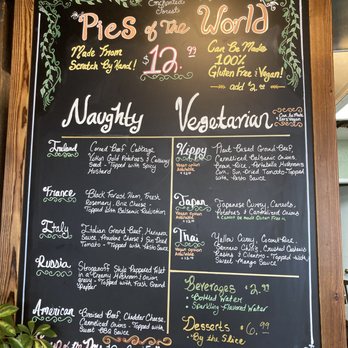 Enchanted
Forest
Pies of The World
Made From
Scratch By Hand!
$12.99
Can Be Made
100%
Gluten Free & Vegan!
add $2.00
Naughty
Vegetarian
Can Be Made
Vegan
Ireland
Corned Beef, Cabbage,
Yukon Gold Potatoes & Caraway
Seed - Topped with Spicy
Mustard
France
Black Forest Ham, Fresh
Rosemary, Brie Cheese -
Topped with Balsamic Reduction
Italy
Italian Ground Beef, Marinara
Sauce, Cheese & Sun Dried
Tomato - Topped with Pesto Sauce
Russia
Stroganoff Style Filet
in a Creamy Mushroom & Onion
Gravy - Topped with Fresh Ground
Pepper
American
Ground Beef, Cheddar Cheese,
Caramelized Onions - Topped with
Sweet BBQ Sauce
Hippy
Vegan Option
Available
Plant-Based Ground Beef,
Caramelized Balsamic Onions,
Brown Rice, Mushrooms
Corn, Sun-Dried Tomato - Topped
with Pesto Sauce
Japan
Vegan Option
Available
Japanese Curry, Carrots,
Potatoes & Caramelized Onions
Cannot be made Gluten Free
Thai
Vegan Option
Available
Yellow Curry, Coconut Rice,
Chili, Crushed Cashews,
Raisins & Cilantro - Topped with
Sweet Mango Sauce
Beverages $2.00
Bottled Water
Sparkling Flavored Water
Desserts $6.99
By the Slice
of the Day